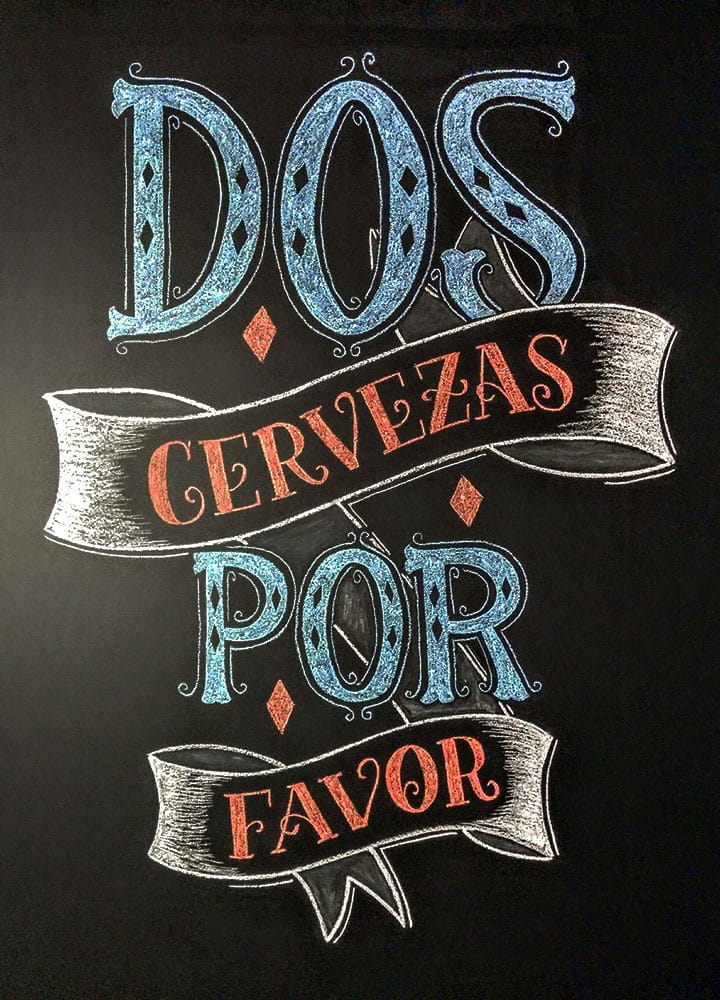 DOS
CERVEZAS
POR
FAVOR